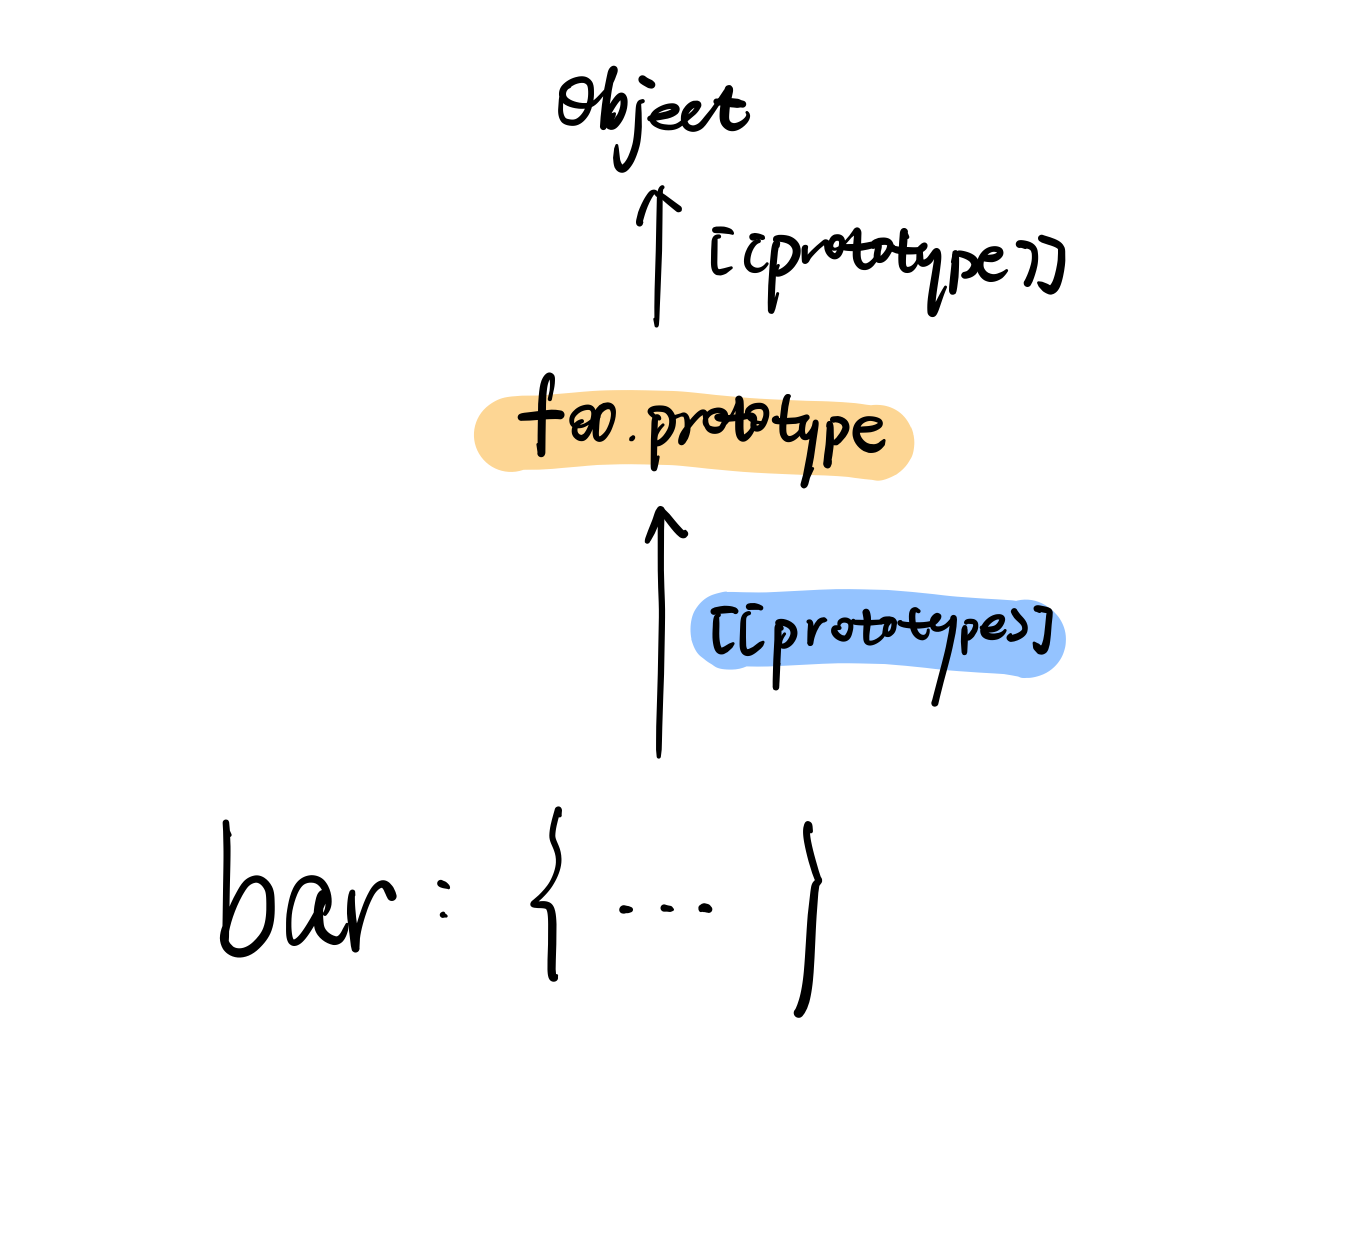 Object
[[prototype]]
foo.prototype
[[prototypes]
bar: { ... }